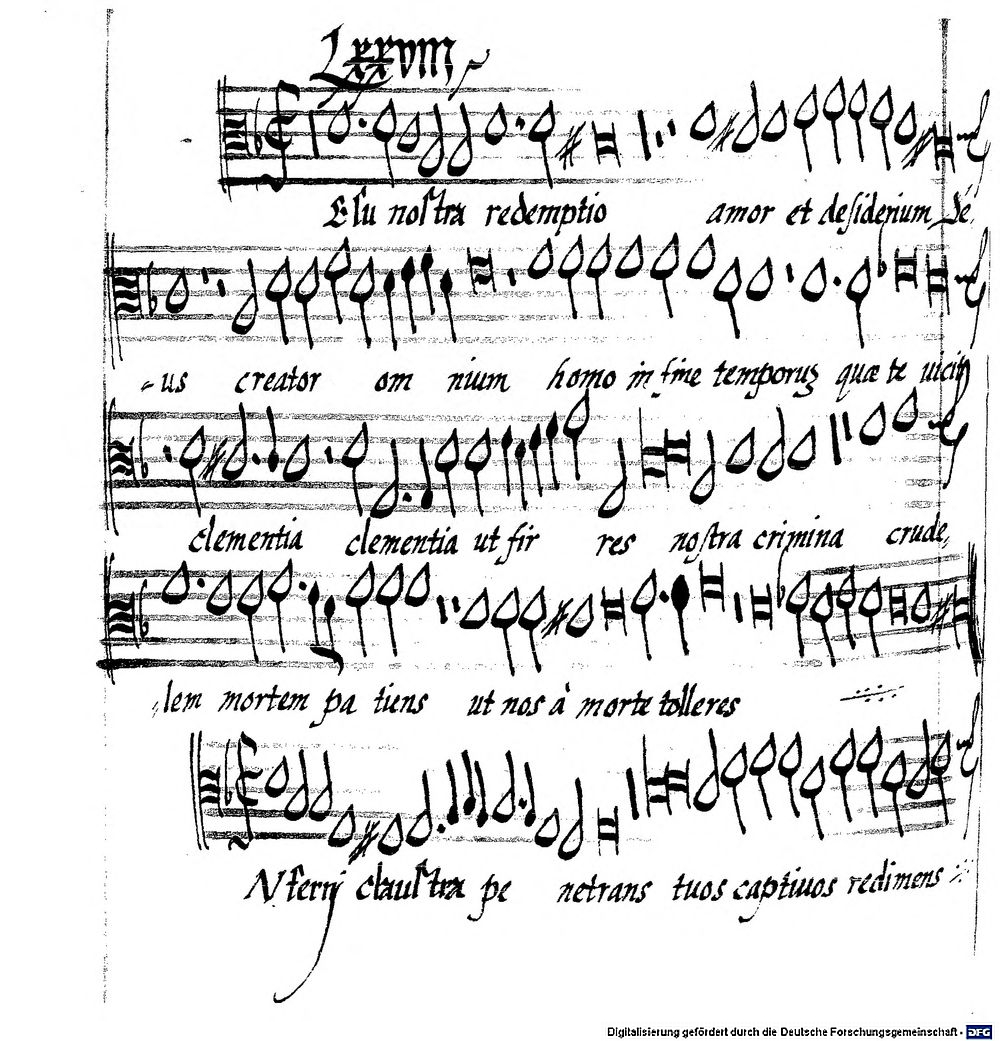 Lxxvııı
Esu nostra redemptio amor et desiderium Dé,
-us creator om nium homo in fine temporuz quæ te uicit
clementia clementia ut fir res nostra crimina crude,
,lem mortem pa tiens ut nos à morte tolleres
Nferij claustra pe netrans tuos captiuos redimens
Digitalisierung gefördert durch die Deutsche Forschungsgemeinschaft - DFG